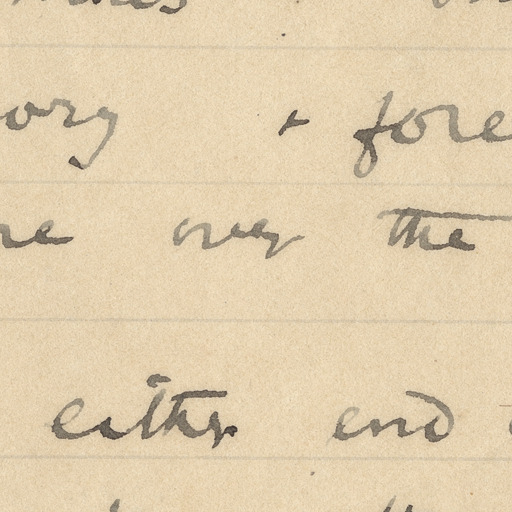 ory + fore
re over the
either end